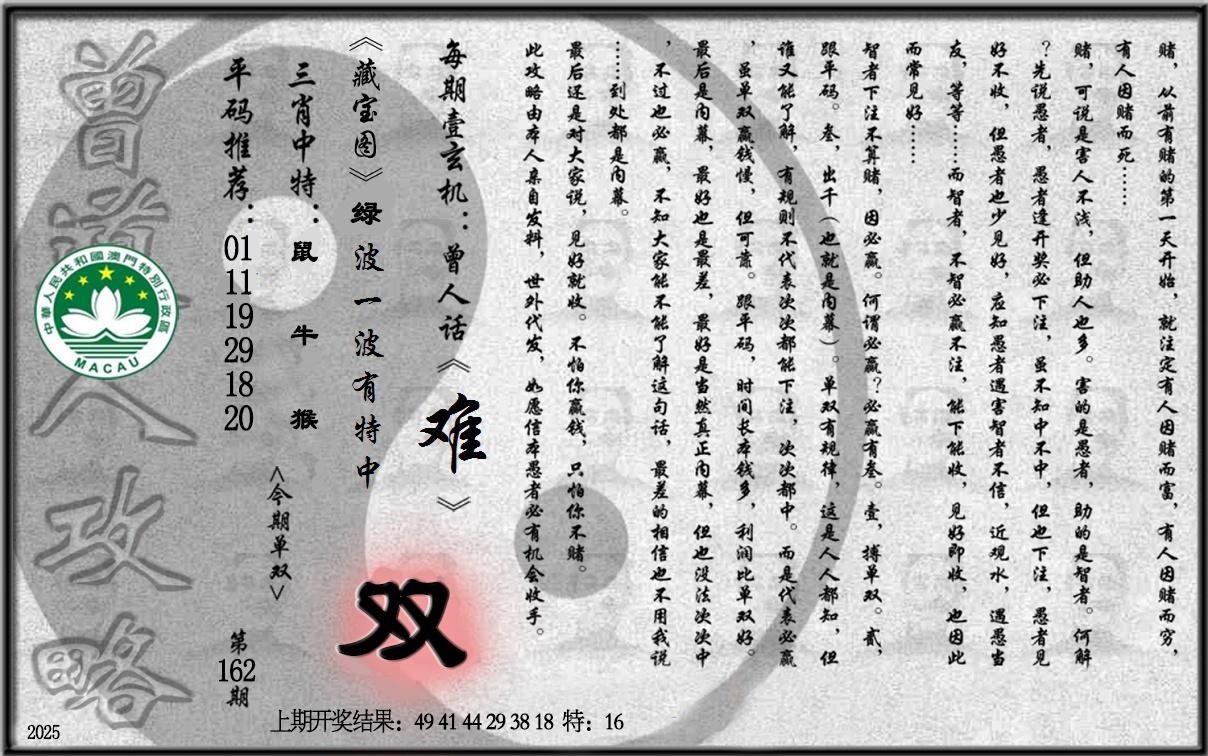 赌，从前有赌的第一天开始，就注定有人因赌而富，有人因赌而穷，
有人因赌而死……
赌，可说是害人不浅，但助人也多。害的是愚者，助的是智者。何解
？先说愚者，愚者逢开奖必下注，虽不知中不中，但也下注，愚者见
好不收，但愚者也少见好，应知愚者遇害智者不信，近观水，遇愚当
友，等等……而智者，不智必赢不注，能下能收，见好即收，也因此
而常见好……
智者下注不算赌，因必赢。何谓必赢？必赢有叁。壹，搏单双。贰，
跟平码。叁，出千（也就是内幕）。单双有规律，这是人人都知，但
谁又能了解，有规则不代表次次都能下注，次次都中。而是代表必赢
，虽单双赢钱慢，但可靠。跟平码，时间长本钱多，利润比单双好。
最后是内幕，最好也是最差，最好是当然真正内幕，但也没法次次中
，不过也必赢，不知大家能不能了解这句话，最差的相信也不用我说
……到处都是内幕。
最后还是对大家说，见好就收。不怕你赢钱，只怕你不赌。
此攻略由本人亲自发料，世外代发，如愿信本愚者必有机会收手。
每期壹玄机：曾人话《难》
《藏宝图》绿波一波有特中
双
三肖中特：鼠牛猴
<今期单双>
平码推荐：
01
11
19
29
18
20
第
162
期
曾道人攻略
中華人民共和國澳門特別行政區
MACAU
上期开奖结果：49 41 44 29 38 18 特：16
2025